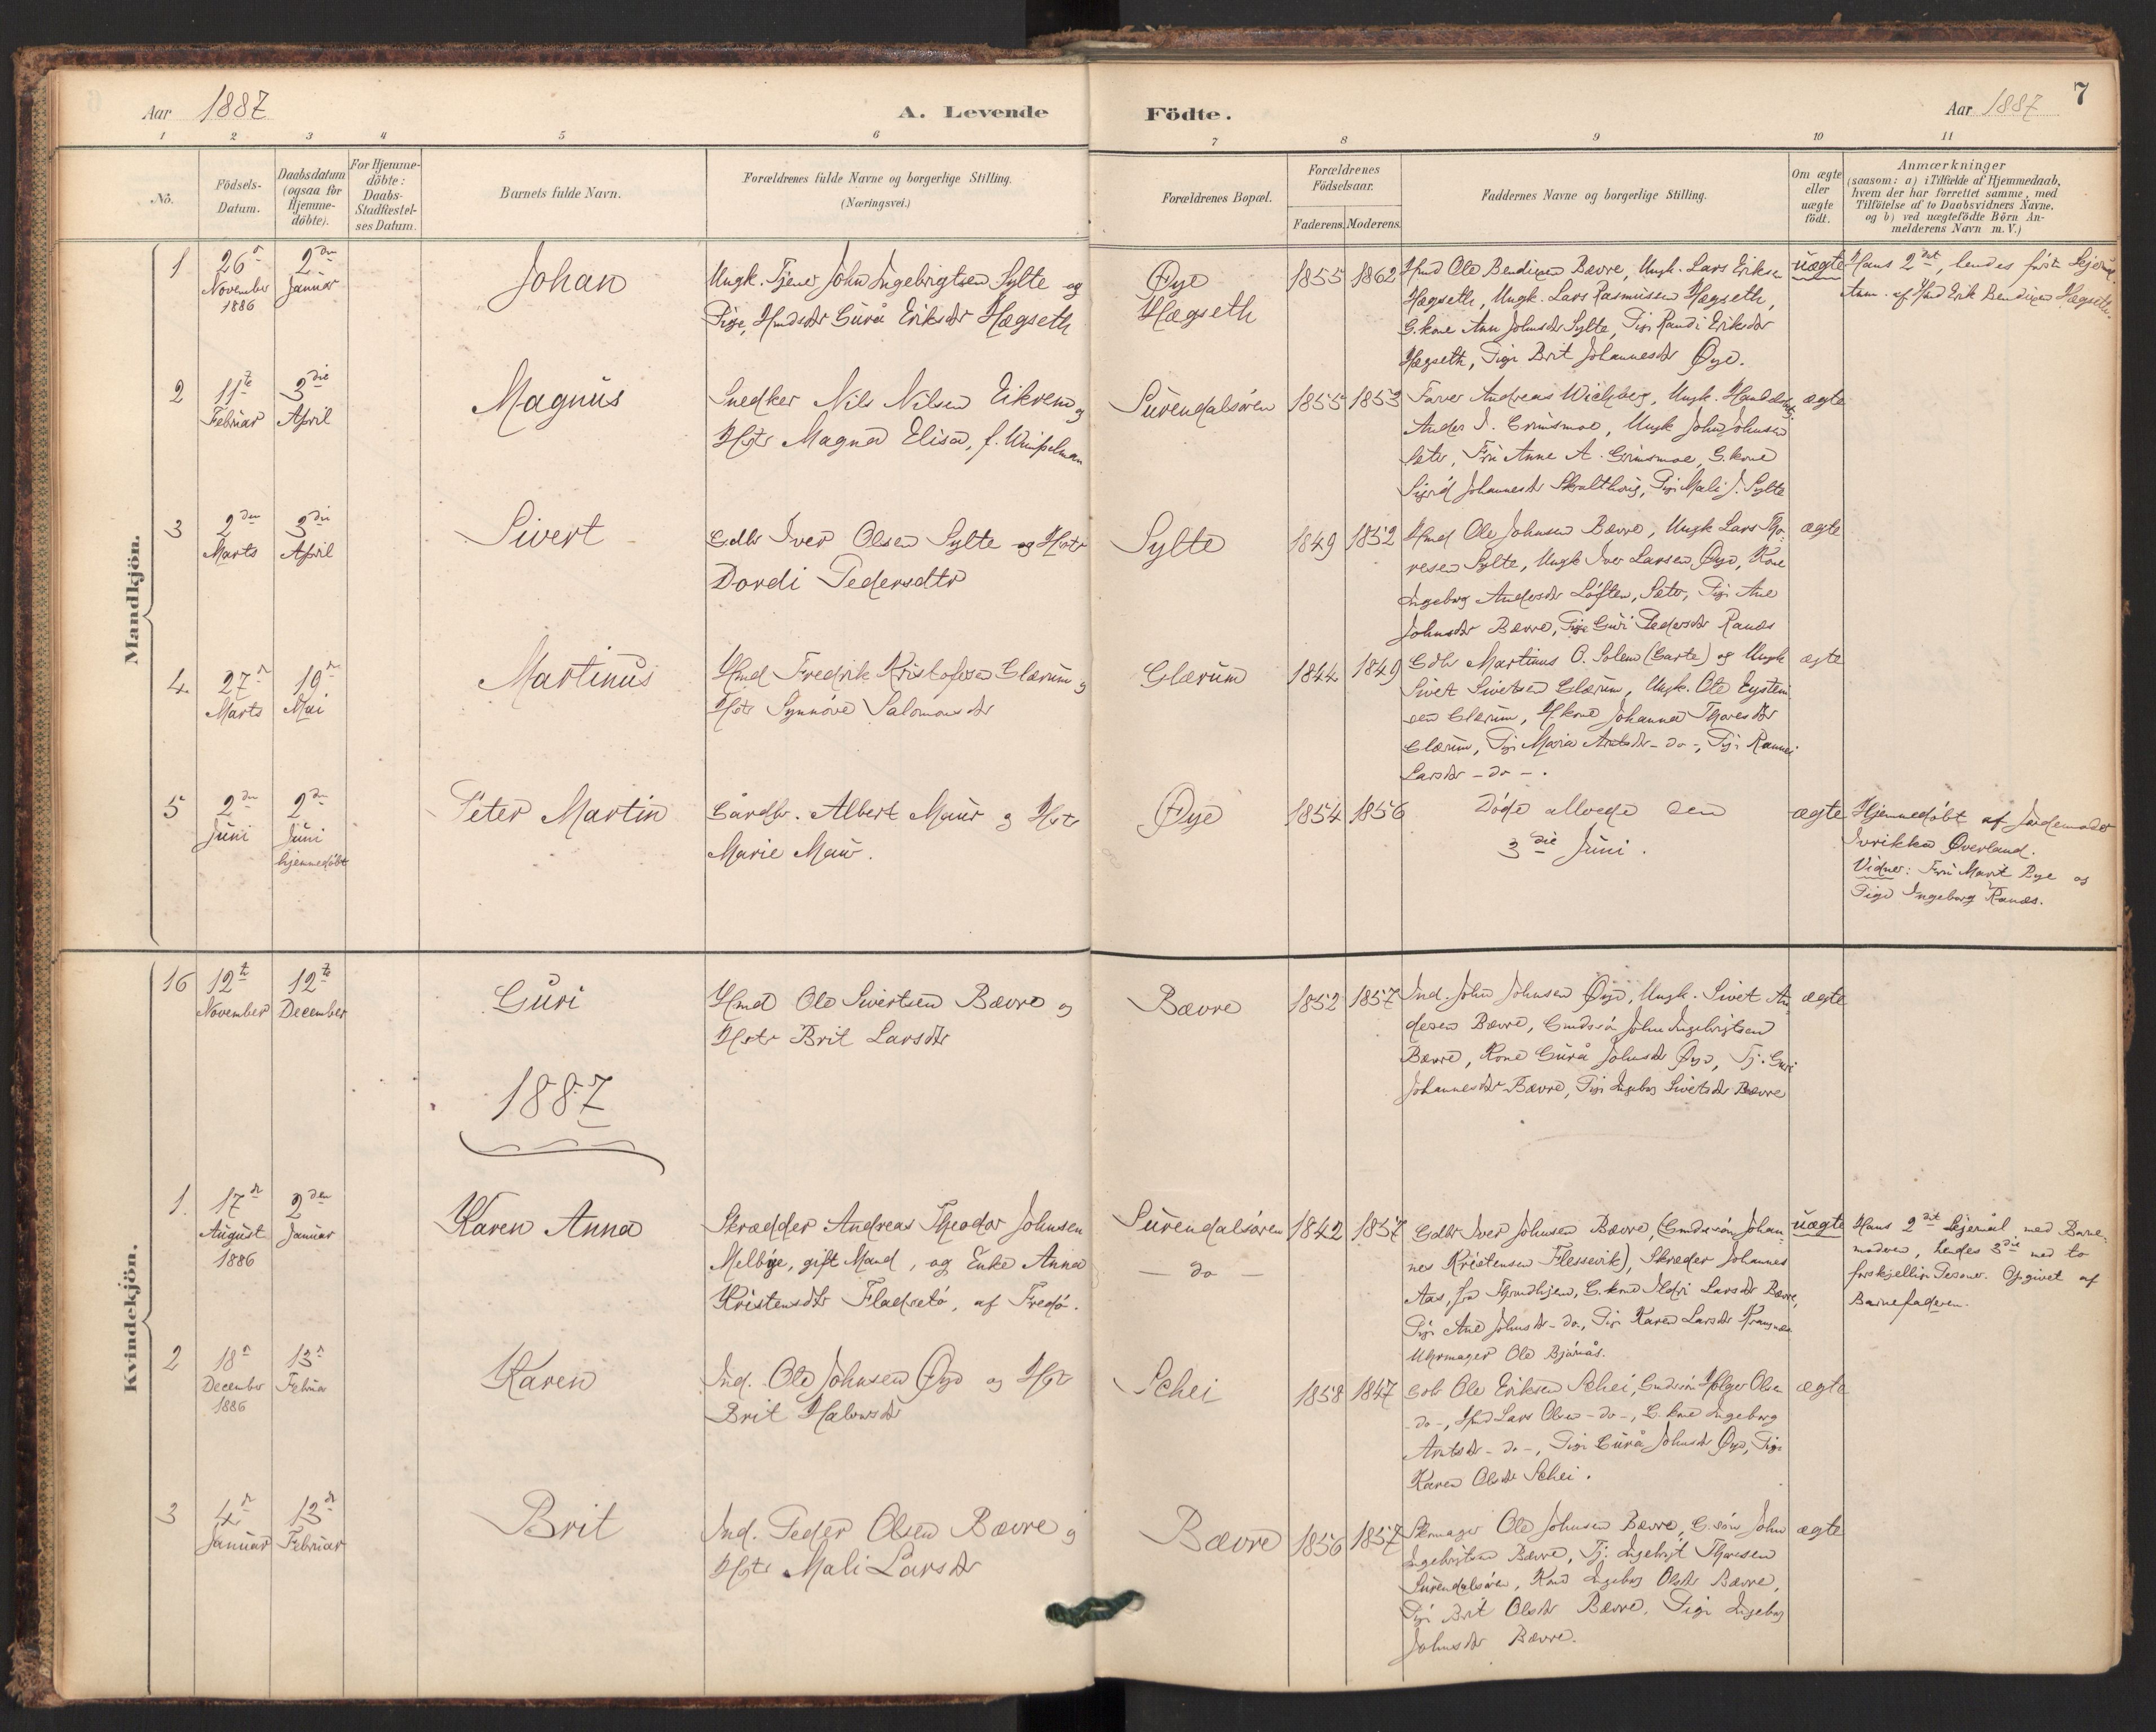 Aar 1887
A. Levende
Födte.
Aar 1887
7
1 2 3 4 5 6 7 8 9 10 11
No.
Födsels-
Datum.
Daabsdatum
(ogsaa for
Hjemme-
döbte).
For Hjemme-
döbte:
Daabs-
Stadfæstel-
ses Datum.
Barnets fulde Navn.
Forældrenes fulde Navne og borgerlige Stilling.
(Næringsvei.)
Forældrenes Bopæl.
Forældrenes
Födselsaar.
Faderens. Moderens.
Faddernes Navne og borgerlige Stilling.
Om ægte
eller
uægte
födt.
Anmærkninger
(saasom: a) i Tilfælde af Hjemmedaab,
hvem der har forrettet samme, med
Tilföielse af to Daabsvidners Navne.
og b) ved uægtefödte Börn An-
melderens Navn m. V.)
Mandkjön.
1
26de
November
1886
2den
Januar
Johan
Ungk. Tjener John Ingebrigtsen Sylte og
Pige, Hmdsdtr Gurå Eriksdtr Hægseth
Øye
Hægseth
1855 1862
Hmd Ole Bendixen Bævre, Ungk. Lars Eriksen
Hægseth, Ungk. Lars Rasmussen Hægseth,
G.kone Ann Johnsdtr Sylte, Pige Randi Eriksdtr
Hægseth, Pige Brit Johannesdtr Øye.
uægte
Hans 2det, hendes første Lejerm.
Anm. af Hmd Erik Bendixen Hægseth.
2
11te
Februar
3die
April
Magnus
Snedker Nils Nilsen Eikrem og
Hstr Magna Elisa, f. Wimpelman
Surendalsøren
1855 1853
Farver Andreas Wichberg, Ungk. Handelsbetj.
Anders J. Grimsmoe, Ungk John Johnsen
Sæter, Fru Anne A. Grimsmoe, G.kone
Sigrid Johannesdtr Skralthoug, Pige Mali J. Sylte
ægte
3
2den
Marts
3die
April
Sivert
Gdbr Iver Olsen Sylte og Hstr
Dordi Pedersdtr
Sylte
1849 1852
Hmd Ole Johnsen Bævre, Ungk Lars Tho-
resen Sylte, Ungk Iver Larsen Øye, Kone
Ingeborg Andersdtr Løften, Sæter, Pige Ane
Johnsdtr Bævre, Pige Guri Pedersdtr Ranæs
ægte
4.
27de
Marts
19de
Mai
Martinus
Hmd Fredrik Kristofersen Glærum og
Hstr Synnøve Salomonsdtr
Glærum
1844 1849
Gdbr Martinus O. Solem (Garte) og Ungk
Sivert Sivertsen Glærum, Ungk. Ole Eystein
sen Glærum, H.kone Johanna Thoresdtr
Glærum, Pige Maria Arntsdtr - do -, Pige Rannei
Larsdtr - do - .
ægte
5
2den
Juni
2den
Juni
hjemmedøbt
Peter Martin
Gårdbr. Albert Maur og Hstr
Marie Maur.
Øye
1854 1856
Døde allerede den
3die Juni.
ægte
Hjemmedøbt af Jordemoder
Ivrikka Øverland.
Vidner: Fru Marit Rye og
Pige Ingeborg Ranæs.
Kvindekjön.
16
12te
November
12te
December
Guri
Hmd Ole Sivertsen Bævre og
Hstr Brit Larsdtr
Bævre
1852 1857
Ind. John Johnsen Øye, Ungk. Sivert An-
dersen Bævre, Gmdssön John Ingebrigtsen
Bævre, Kone Gurå Johnsdtr Øye, Tj. Guri
Johannesdtr Bævre, Pige Ingeborg Sivertsdtr Bævre
ægte
1887
1.
17de
August
1886
2den
Januar
Karen Anna
Skrædder Andreas Theodor Johnsen
Melbye, gift Mand, og Enke Anna
Kristensdtr Fladsetø, af Fredø.
Surendalsøren
- do -
1842 1857
Gdbr Iver Johnsen Bævre, (Gmdssön Johan-
nes Kristensen Flessevik), Skræder Johannes
Aas, fra Throndhjem, G.kone Ildri Larsdtr Bævre,
Pige Ane Johnsdtr - do -, Pige Karen Larsdtr
Uhrmager Ole Bjørnås.
uægte
Hans 2det Lejermål med Barne-
moderen, hendes 3die med to
forskjellige Personer. Opgivet af
Barnefaderen.
2
18de
December
1886
13de
Februar
Karen
Ind. Ole Johnsen Øye og Hstr
Brit Halvorsdtr
Schei
1858 1847
Gdbr Ole Eriksen Schei, Gmdssön Holger Olsen
- do -, Hmd Lars Olsen - do -, G.kone Ingeborg
Arntsdtr - do -, Pige Gurå Johnsdtr Øye, Pige
Karen Olsdtr Schei.
ægte
3
4de
Januar
13de
Februar
Brit
Ind. Peder Olsen Bævre og
Hstr Mali Larsdtr
Bævre
1856 1857
Skomager Ole Johnsen Bævre, G.sön John
Ingebrigtsen Bævre, Tj. Ingebrigt Thoresen
Surendalsøren, Kone Ingeborg Olsdtr Bævre,
Pige Brit Olsdtr Bævre, Pige Ingeborg
Johnsdtr Bævre.
ægte